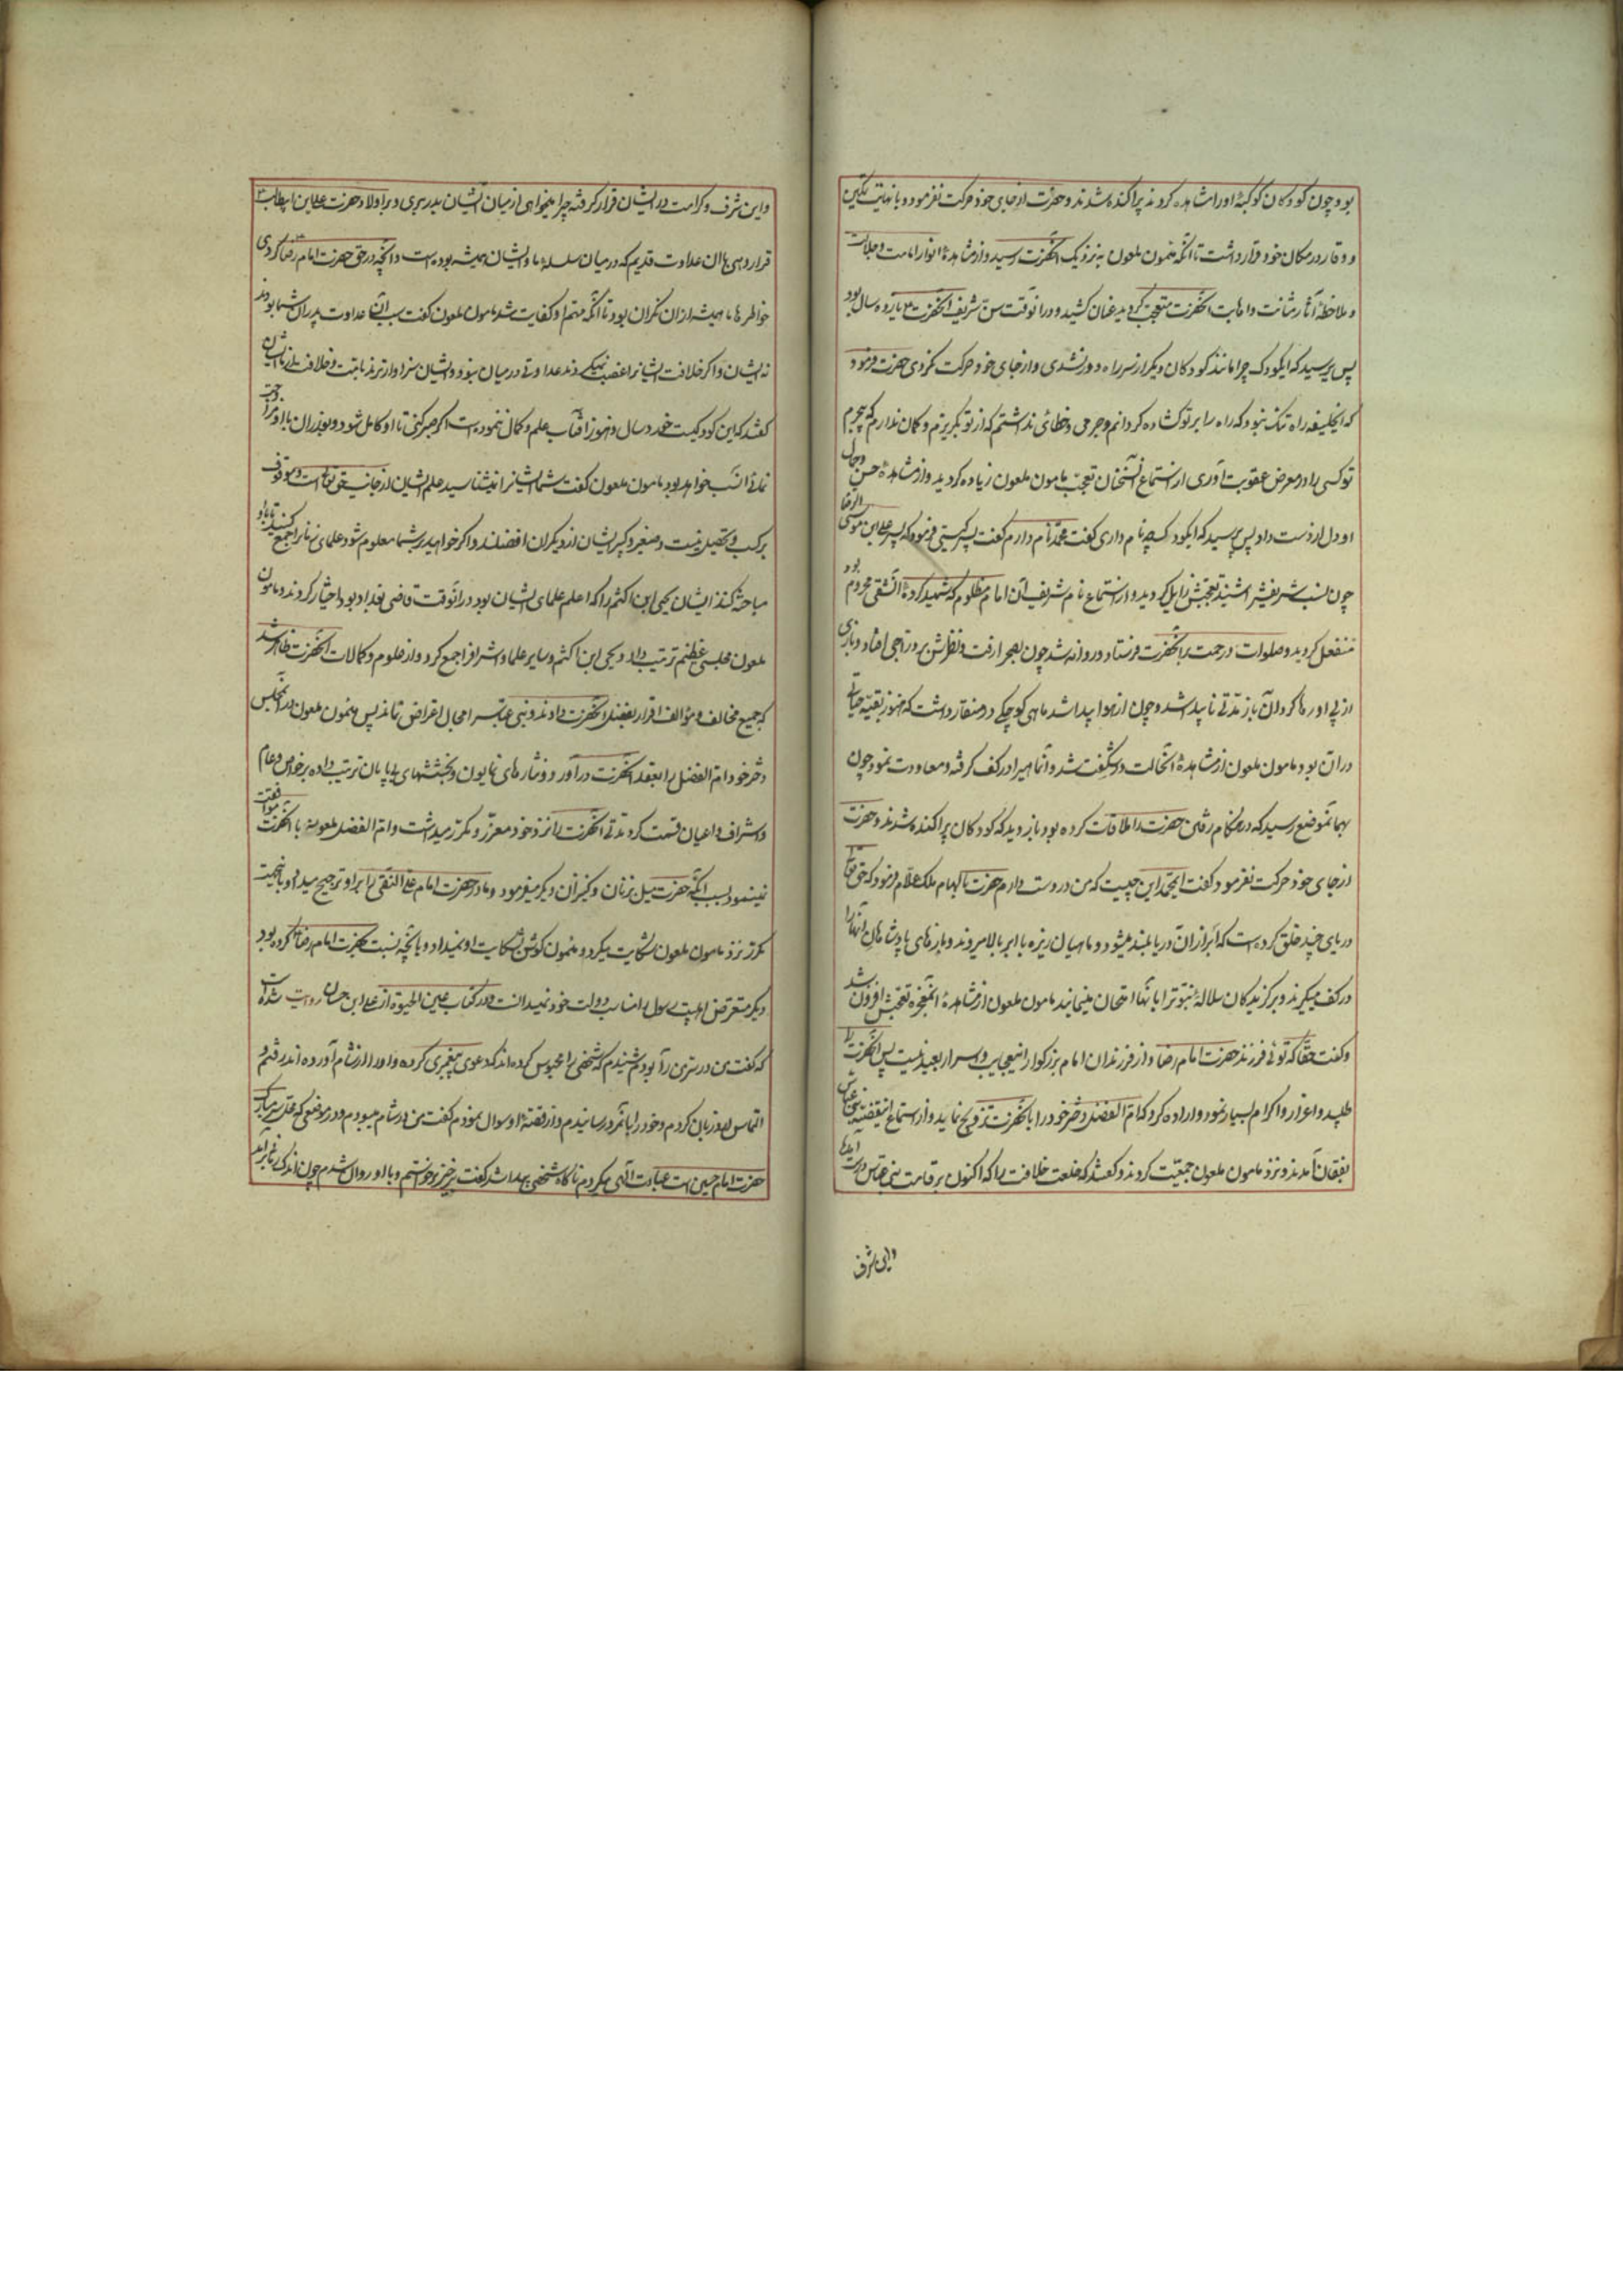 بود چون کودکان کوکبهٔ او را مشاهده کردند پراکنده شدند و حضرت از جای خود حرکت نفرمود و با نهایت تمکین
و وقار در مکان خود قرار داشت تا آنکه مأمون ملعون به نزدیک آنحضرت رسید و از مشاهدهٔ انوار امامت و جلالت
و ملاحظهٔ آثار متانت و مهابت آنحضرت متعجب گردید عنان کشید و در آنوقت سن شریف آنحضرت یازده سال بود
پس پرسید که ایکودک چرا مانند کودکان دیگر از سر راه دور نشدی و از جای خود حرکت نکردی حضرت فرمود
که ایخلیفه راه تنک نبود که راه را بر تو کشاده کردانم و جرمی و خطائی نداشتم که از تو بگریزم و کمان ندارم که بیجرم
تو کسی را در معرض عقوبت آوری از استماع آنسخنان تعجب مامون ملعون زیاده کردید و از مشاهدهٔ حسن و جمال
او دل از دست داد پس پرسید که ایکودک چه نام داری گفت محمد نام دارم گفت پسر کیستی فرمود که پسر علی ابن موسی الرضا
چون نسب شریفش را شنید تعجبش زایل کردید و از استماع نام شریف آن امام مظلوم که شهید کردهٔ آن شقی محروم بود
منفعل کردید و صلوات و رحمت بر آنحضرت فرستاد و روانه شد چون بصحرا رفت و نظرش بر دراجی افتاد و بازی
از پی او رها کرد آن باز مدتی ناپیدا شد و چون از هوا پیدا شد ماهی کوچکی در منقار داشت که هنوز بقیه حیاتی
در آن بود مامون ملعون از مشاهدهٔ آنحالت در شگفت شد و آنماهیرا در کف گرفته و معاودت نمود چون
بهمانموضع رسید که در هنگام رفتن حضرت را ملاقات کرده بود باز دید که کودکان پراکنده شدند و حضرت
از جای خود حرکت نفرمود گفت ایمحمد این چیست که من در دست دارم حضرت بالهام ملک علام فرمود که حق تعالی
دریای چند خلق کرده است که ابر از آن دریا بلند میشود و ماهیان ریزه با ابر بالا میروند و بازهای پادشاهان آنها را
در کف میگیرند و برکزیدکان سلالهٔ نبوترا بآنها امتحان مینمایند مامون ملعون از مشاهدهٔ آنمعجزه تعجبش افزون شد
و گفت حقا که توئی فرزند حضرت امام رضا و از فرزندان امام بزرکوار اینعجایب و اسرار بعید نیست پس آنحضرت را
طلبید و اعزاز و اکرام بسیار نمود و اراده کرد که ام الفضل دختر خود را با آنحضرت تزویج نماید و از استماع اینقضیه بنی عباس
بفغان آمدند و نزد مامون ملعون جمعیت کردند و گفتند که خلعت خلافت را که اکنون بر قامت بنی عباس درست آمده
و این شرف
و این شرف و کرامت در ایشان قرار گرفته چرا میخواهی از میان ایشان بدر بری و در اولاد حضرت علی ابن ابیطالب
قرار دهی با آن عداوت قدیم که در میان سلسلهٔ ما و ایشان همیشه بوده است و آنچه در حق حضرت امام رضا کردی
خواطرها ما همیشه از آن نگران بود تا آنکه مهم او کفایت شد مامون ملعون گفت سبب آن عداوت پدران شما بودند
نه ایشان و اگر خلافت ایشانرا غصب نمیکردند عداوتی در میان نبود و ایشان سزاوارترند بامامت و خلافت از ما ایشان
گفتند که این کودکیست خورد سال و هنوز اقتباس علم و کمال ننموده است اگر صبر کنی تا او کامل شود و بعد از آن با او مزاوجت
نمائی انسب خواهد بود مامون ملعون گفت شما ایشانرا نمیشناسید علم ایشان از جانب حق تعالی است و موقوف
بر کسب و تحصیل نیست و صغیر و کبیر ایشان از دیگران افضلند و اگر خواهید بر شما معلوم شود علمای زمانرا جمع کنید تا با او
مباحثه کنند ایشان یحیی ابن اکثم را که اعلم علمای ایشان بود در آنوقت قاضی بغداد بود اختیار کردند و مامون
ملعون مجلسی عظیم ترتیب داد و یحیی ابن اکثم و سایر علما و اشرافرا جمع کرد و از علوم و کمالات آنحضرت ظاهر شد
که جمیع مخالف و مؤالف اقرار بفضل آنحضرت دادند و بنی عباسرا مجال اعتراض نماند پس مامون ملعون در آنمجلس
دختر خود ام الفضل را بعقد آنحضرت درآورد و نثارهای همایون و بخششهای بی پایان ترتیب داده بر خواص و عام
و اشراف و اعیان قسمت کرد و مدتی آنحضرت را نزد خود معزز و مکرم میداشت و ام الفضل ملعونه با آنحضرت موافقت
نمینمود بسبب آنکه حضرت میل بزنان و کنیزان دیگر میفرمود و مادر حضرت امام علی النقی را بر او ترجیح میداد و باینجهت
مکرر نزد مامون ملعون شکایت میکرد و مامون گوش بشکایت او نمیداد و بآنچه نسبت بحضرت امام رضا کرده بود
دیگر متعرض اهلبیت رسول را مناسب دولت خود نمیدانست و در کتاب عین الحیوة از علی ابن حسان روایت شده است
که گفت من در سر من رآ بودم شنیدم که شخصی را محبوس کرده اند که دعوی پیغمبری کرده و او را از شام آورده اند رفتم و
التماس از دربان کردم و خود را باو رسانیدم و از قصهٔ او سوال نمودم گفت من در شام میبودم و در موضعی که محل سر مبارک
حضرت امام حسین است عبادت الهی میکردم ناگاه شخصی پیدا شد گفت برخیز برخواستم و با او روان شدم چون اندکی راه برآمد